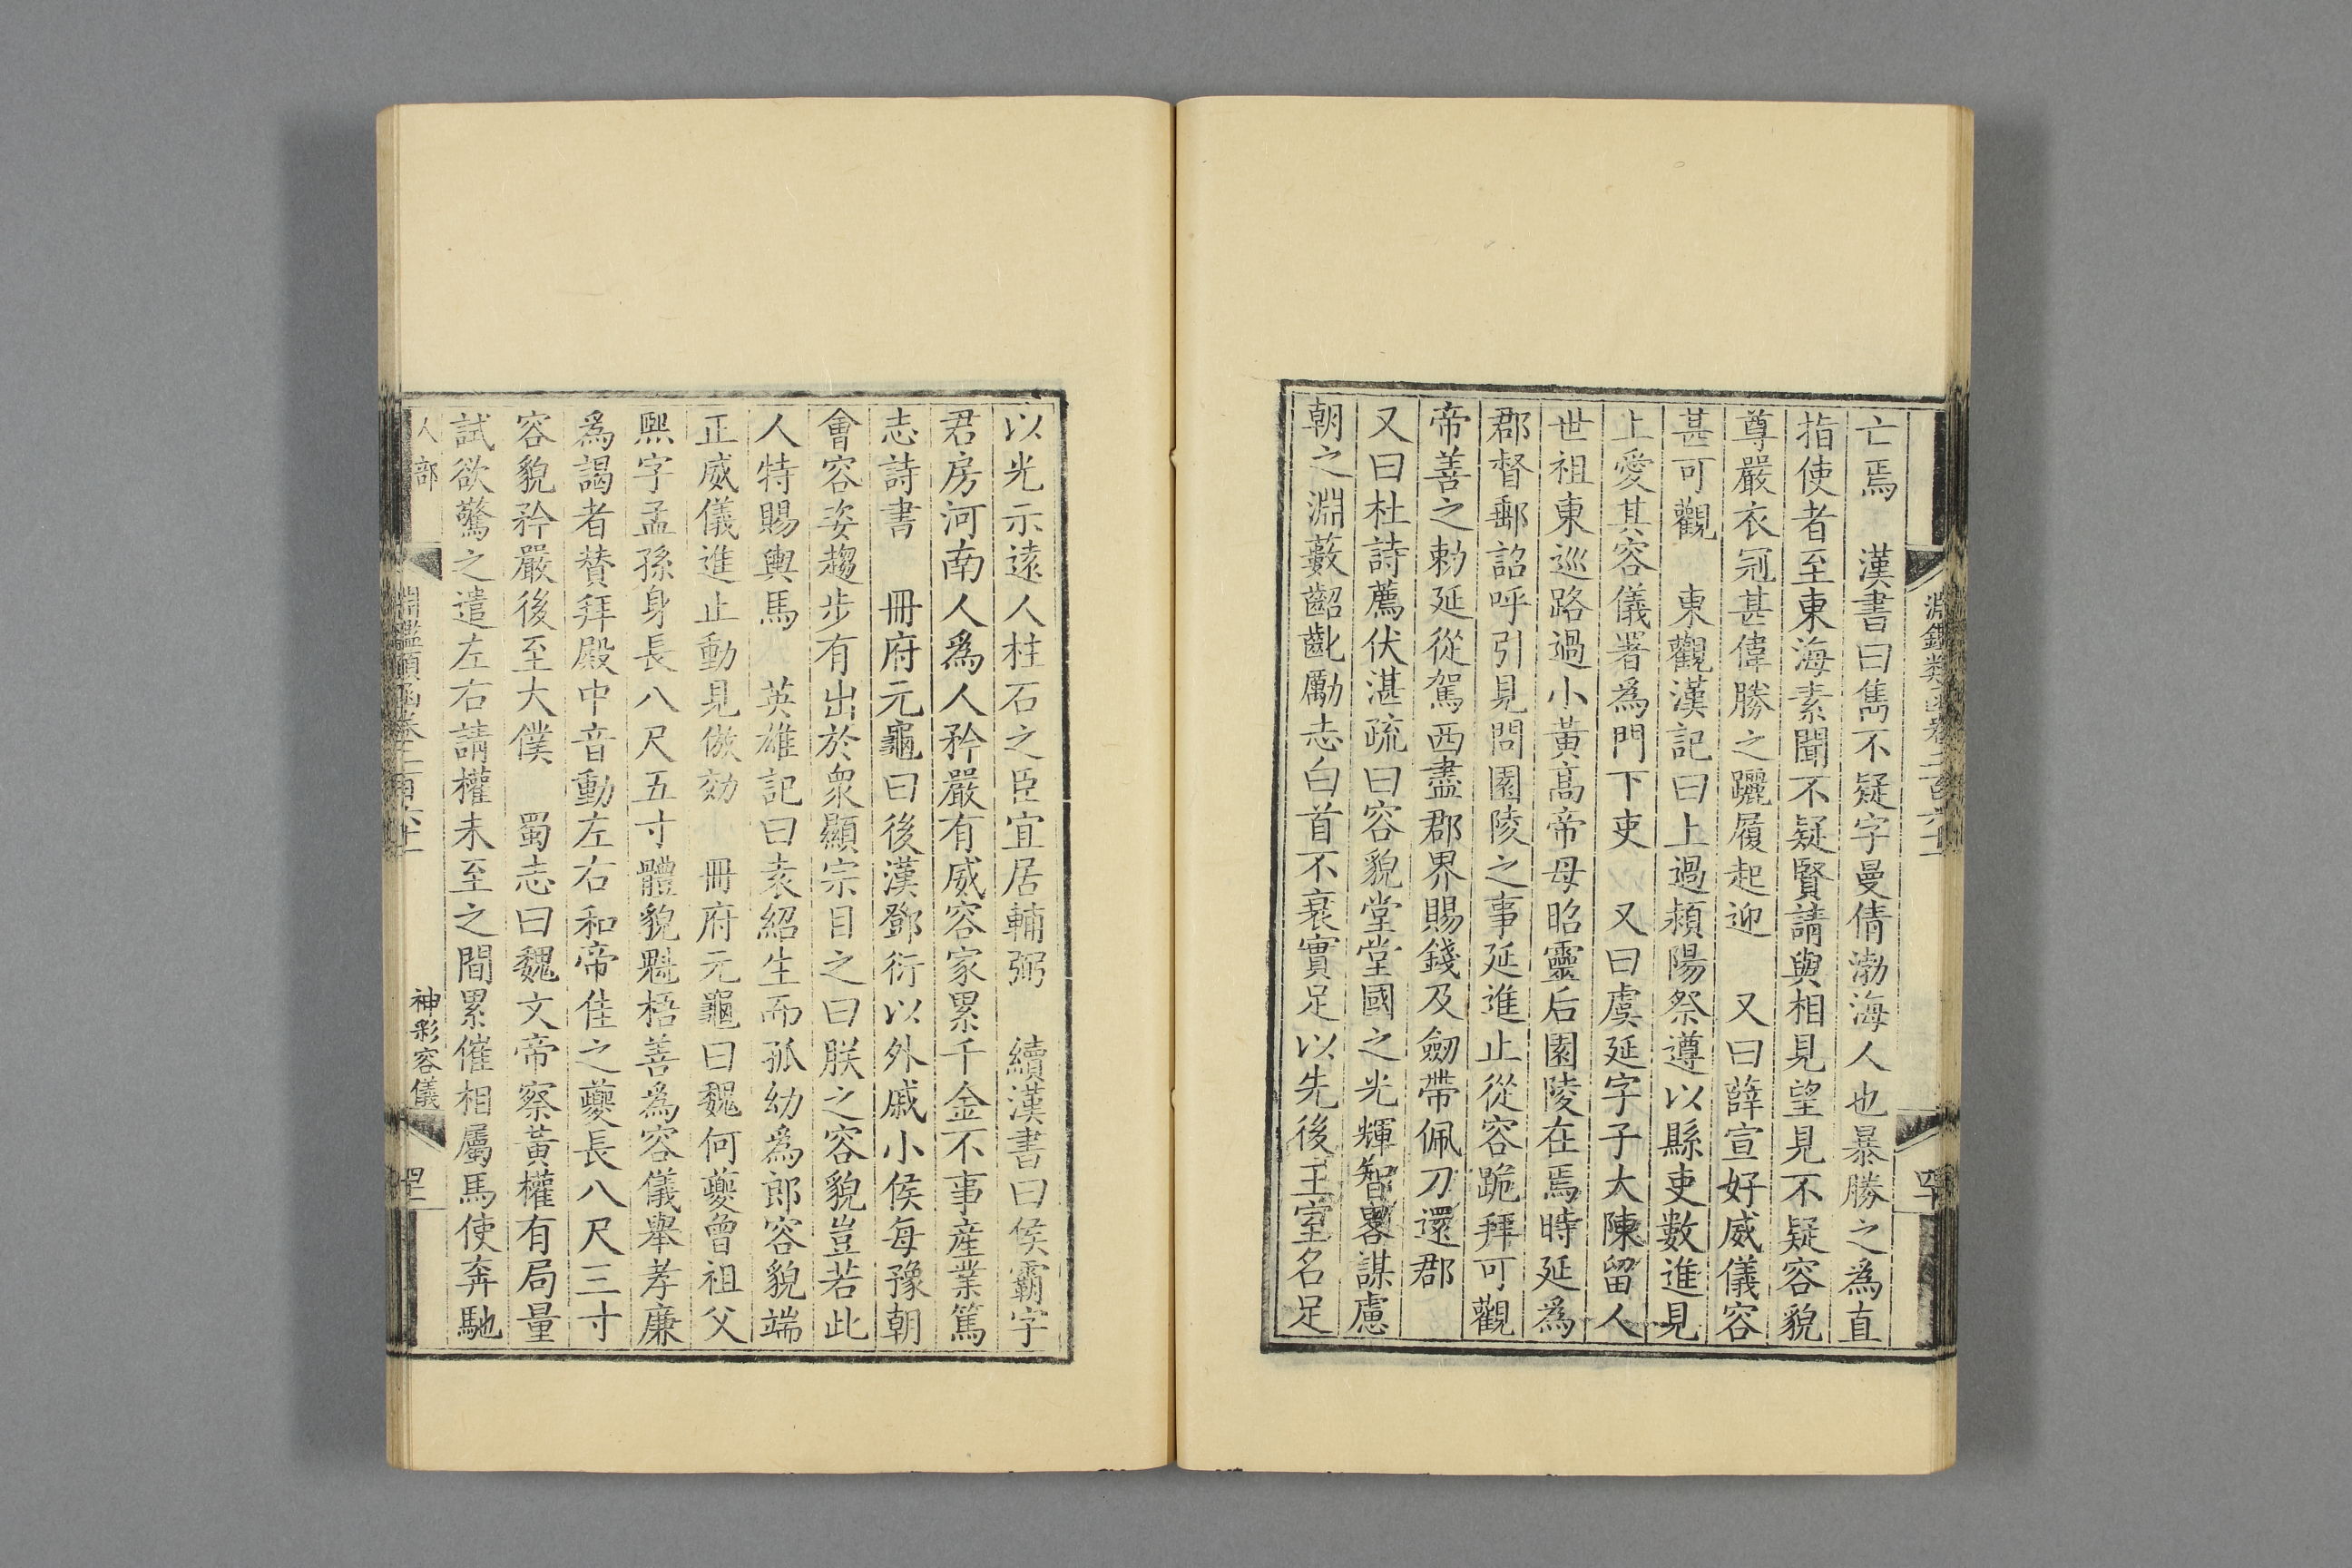 亡焉　漢書曰雋不疑字曼倩渤海人也暴勝之為直
指使者至東海素聞不疑賢請與相見望見不疑容貌
尊嚴衣冠甚偉勝之躧履起迎　又曰薛宣好威儀容
甚可觀　東觀漢記曰上過潁陽祭遵以縣吏數進見
上愛其容儀署為門下吏　又曰虞延字子大陳留人
世祖東巡路過小黃高帝母昭靈后園陵在焉時延為
郡督郵詔呼引見問園陵之事延進止從容跪拜可觀
帝善之勅延從駕西盡郡界賜錢及劒帶佩刀還郡
又曰杜詩薦伏湛疏曰容貌堂堂國之光輝智畧謀慮
朝之淵藪齠齔勵志白首不衰實足以先後王室名足
以光示遠人柱石之臣宜居輔弼　續漢書曰侯霸字
君房河南人為人矜嚴有威容家累千金不事産業篤
志詩書　冊府元龜曰後漢鄧衍以外戚小侯每豫朝
會容姿趨步有出於衆顯宗目之曰朕之容貌豈若此
人特賜輿馬　英雄記曰袁紹生而孤幼為郎容貌端
正威儀進止動見倣効　冊府元龜曰魏何夔曾祖父
熙字孟孫身長八尺五寸體貌魁梧善為容儀舉孝廉
為謁者贊拜殿中音動左右和帝佳之夔長八尺三寸
容貌矜嚴後至大僕　蜀志曰魏文帝察黃權有局量
試欲驚之遣左右請權未至之間累催相屬馬使奔馳
人部　淵鑑類函卷二百六十一　神彩容儀